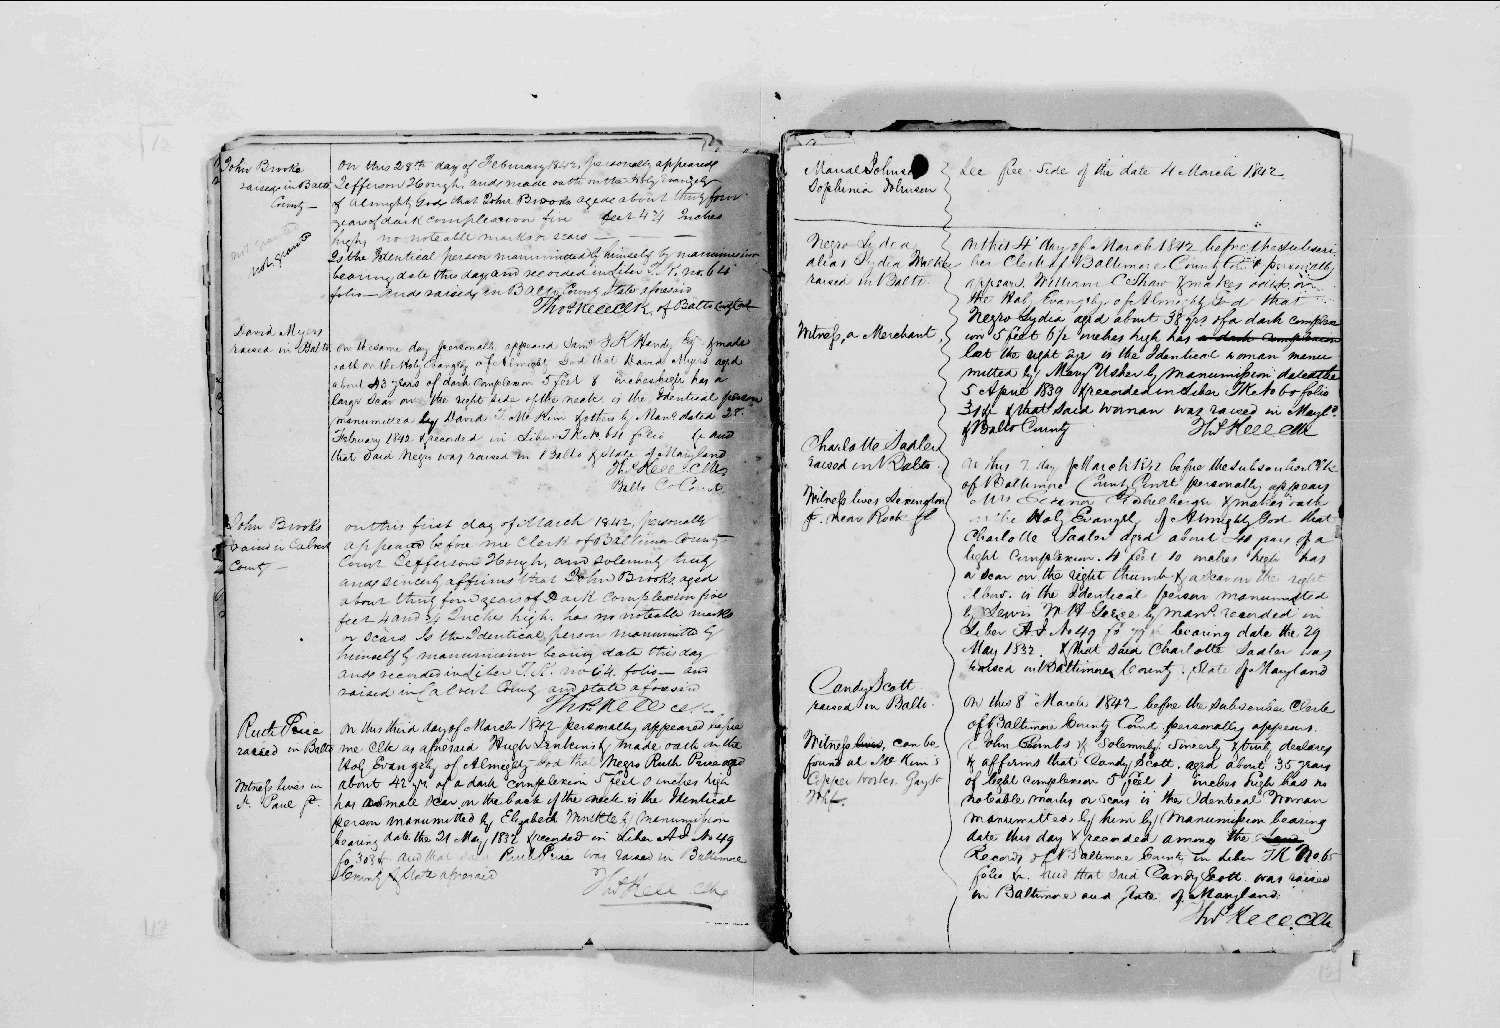 John Brooks
raised in Balto
County —
not granted
not granted
On this 28th day of February 1842, personally appeared
Jefferson Hough, and made oath on the Holy Evangely
of Almighty God that John Brooks aged about thirty four
years of dark complexion five feet 4 3/4 Inches
high, no noteable marks or scars —
Is the Identical person manumitted by himself by manumission
bearing date this day and recorded in Liber T.K. no. 64
folio — and raised in Balto County State aforesaid
Thos. Kell Clk. of Balto County Court
David Myers
raised in Balto
On the same day personally appeared Saml J. K. Handy Esq. & made
oath on the Holy Evangely of Almighty God that David Myers aged
about 43 years of dark complexion 5 feet 8 inches high has a
large scar on the right side of the neck is the Identical person
manumitted by David T. McKim & others by Manu. dated 28.
February 1842 & recorded in Liber T K No. 64 folio &c and
that said Negro was raised in Balto & State of Maryland
Thos Kell Clk
Balto Co Court
John Brooks
raised in Calvert
County —
On this first day of March 1842, personally
appeared before me Clerk of Baltimore County
Court Jefferson Hough, and solemnly truly
and sincerely affirms that John Brooks, aged
about thirty four years of Dark complexion five
feet 4 and 3/4 Inches high. has no noteable marks
or scars Is the Identical person manumitted by
himself by manumission bearing date this day
and recorded in Liber T.K. no 64. folio — and
raised in Calvert County and state aforesaid
Thos. Kell Clk
Ruth Price
raised in Balto
Witness lives in
St. Paul St.
On this third day of March 1842 personally appeared before
me Clk as aforesaid Hugh Jenkins & made oath on the
Holy Evangely of Almighty God that Negro Ruth Price aged
about 42 yrs. of a dark complexion 5 feet. 0 inches high
has a small scar on the back of the neck is the Identical
person manumitted by Elizabeth by manumission
bearing date the 21 May 1832 & recorded in Liber A I No 49
fo. 303 &. and that said Ruth Price was raised in Baltimore
County & State aforesaid
Thos Kell Clk
Maria Johnson
Sophinia Johnson
See free. Side of the date 4 March 1842
Negro Lydia
alias Lydia Walker
raised in Balto.
Witness, a Merchant,
On this 4 day of March 1842 before the subscri-
ber Clerk of Baltimore County Court personally
appears William C Shaw & makes oath on
the Holy Evangely of Almighty God that
Negro Lydia aged about 38 yrs of a dark complex-
ion 5 feet 6 1/2 inches high has a dark complexion
lost the right eye is the Identical woman manu-
mitted by Mary Usher by manumission dated the
5 April 1839 & recorded in Liber T K No 60 folio
& that said woman was raised in Maryld.
& Balto County
Thos Kell Clk
Charlotte Sadler
raised in Balto.
Witness lives Lexington
St. near Park St
On this 7 day of March 1842 before the subscriber Clk
of Baltimore County Court personally appears
Mrs Eleanor & makes oath
on the Holy Evangely of Almighty God that
Charlotte Sadler aged about 40 years of a
light complexion. 4 feet 10 inches high has
a scar on the right thumb & a scar on the right
elbow. is the Identical person manumitted
by Lewis by Manu. recorded in
Liber A I No 49 fo bearing date the 29
May 1832. & that said Charlotte Sadler was
raised in Baltimore County. State of Maryland
Candy Scott
raised in Balto.
Witness lives, can be
found at McKim's
Copper works. Gay St
Whf.
On this 8 March 1842 before the subscriber Clerk
of Baltimore County Court personally appears.
John Combs & Solemnly Sincerely & truly declares
& affirms that Candy Scott. aged about 35 years
of light complexion 5 feet 1 inches high has no
noteable marks or scars is the Identical Woman
manumitted by him by Manumission bearing
date this day & recorded among the Land
Records of Baltimore County in Liber T K No 65
folio &c. and that said Candy Scott was raised
in Baltimore and State of Maryland.
Thos Kell. Clk